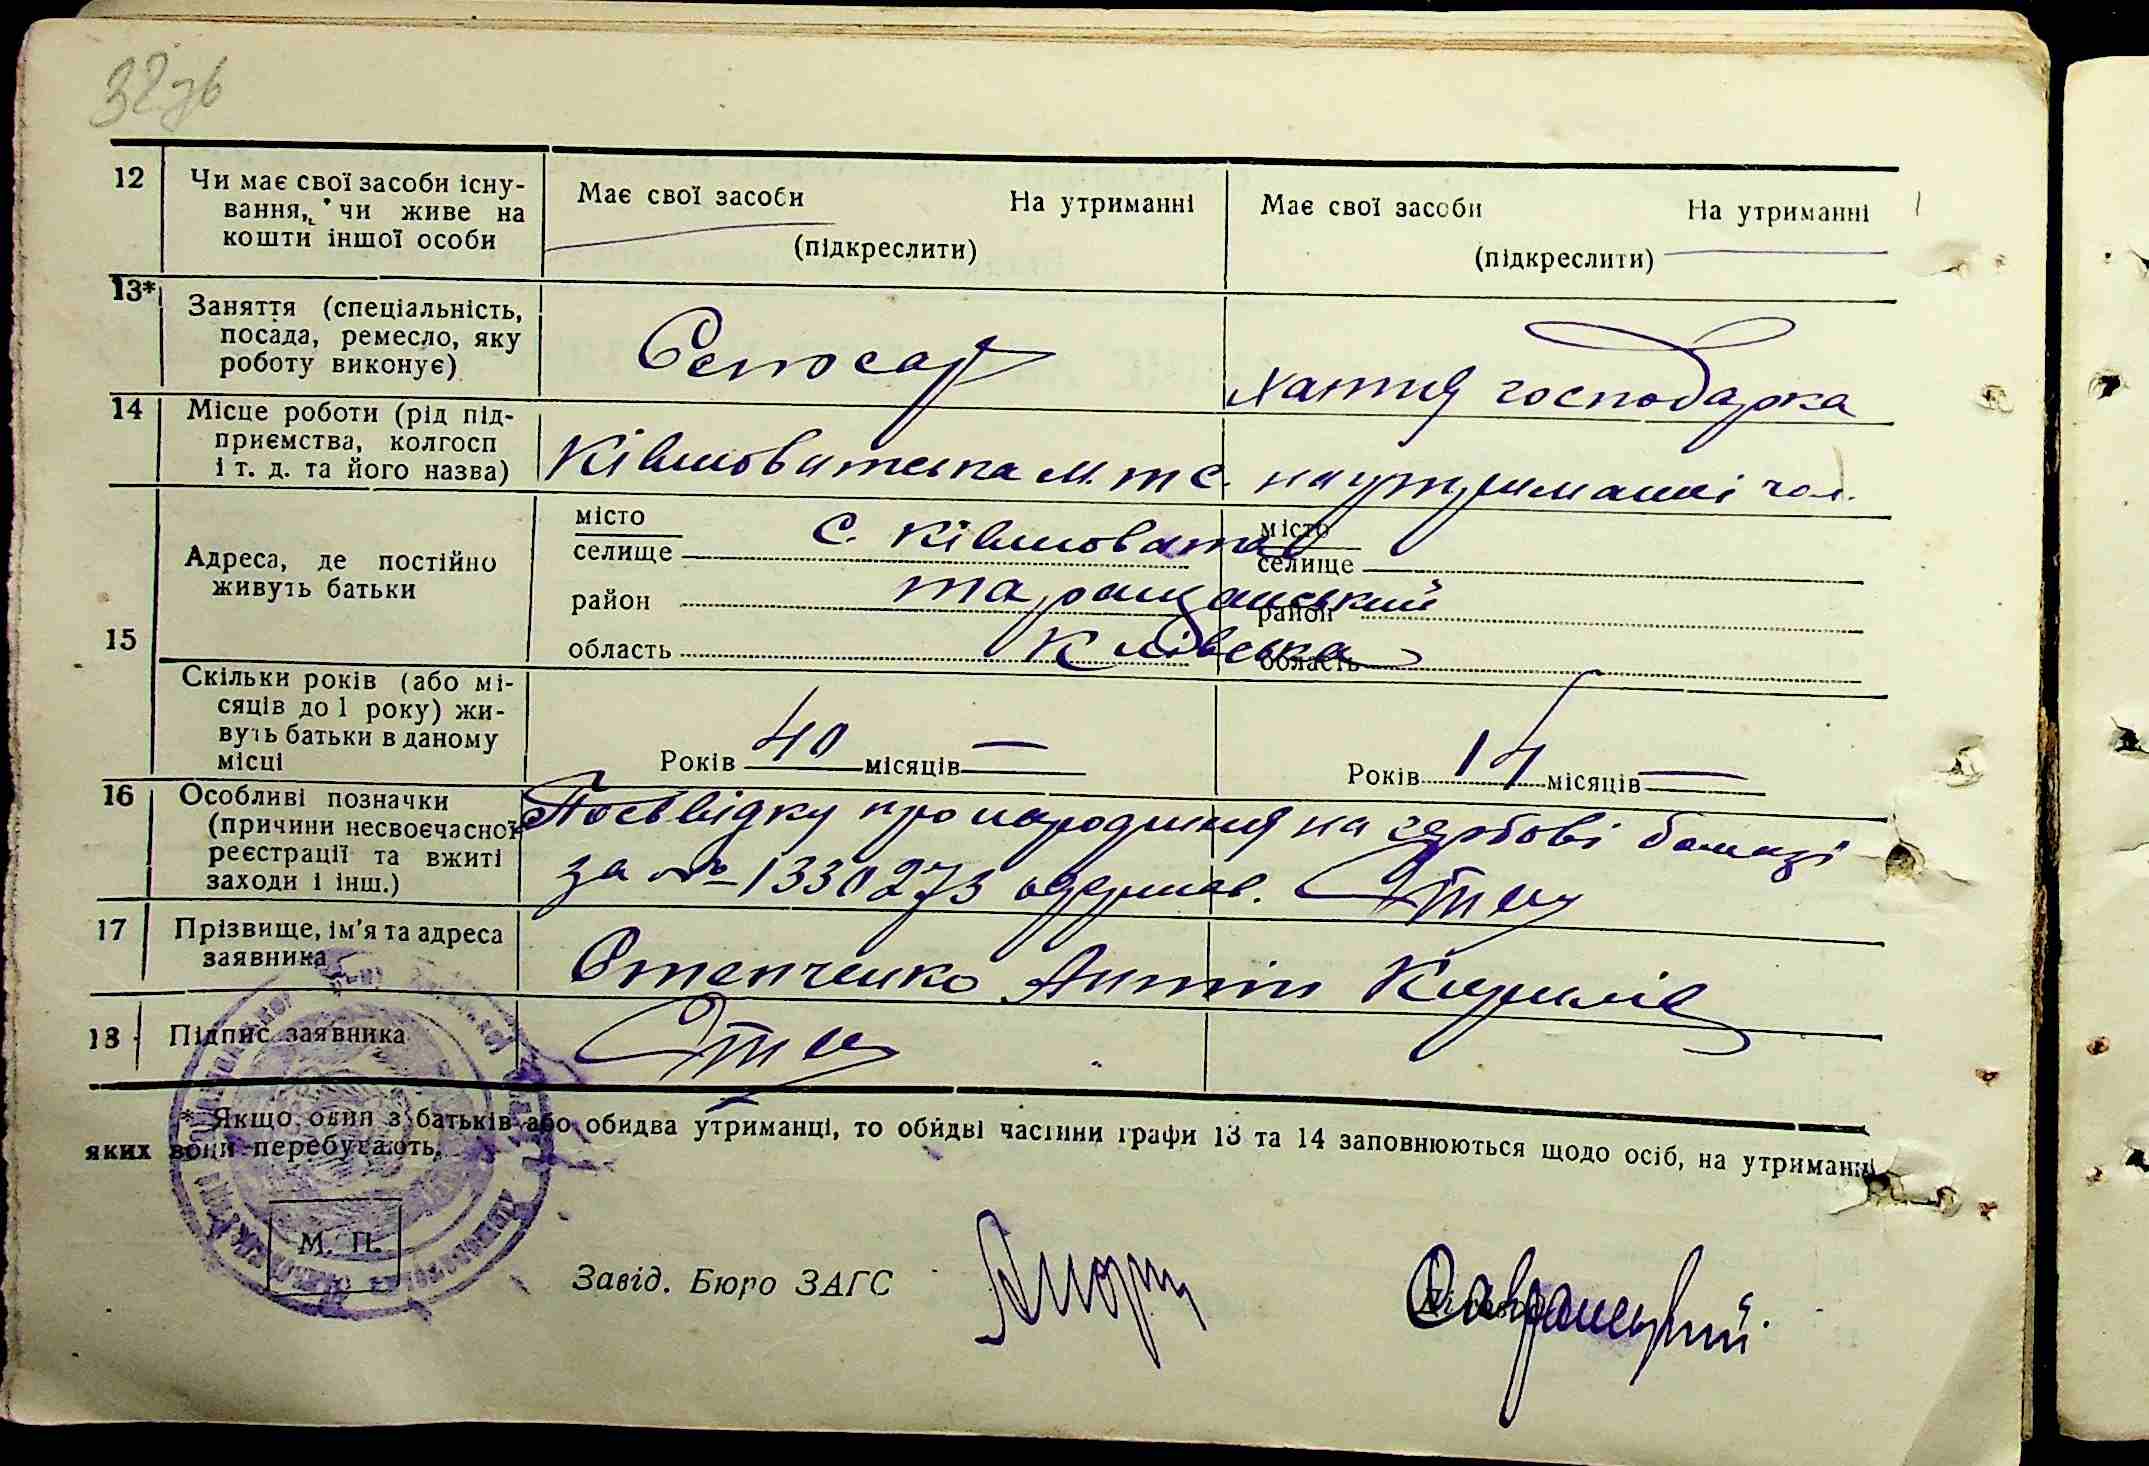 32зв
12 Чи має свої засоби існу-
вання, чи живе на
кошти іншої особи
Має свої засоби На утриманні
(підкреслити)
Має свої засоби На утриманні
(підкреслити)
13* Заняття (спеціальність,
посада, ремесло, яку
роботу виконує)
Слюсар
хатня господарка
14 Місце роботи (рід під-
приємства, колгосп
і т. д. та його назва)
Ківшоватська м.т.с.
на утриманні чол.
15 Адреса, де постійно
живуть батьки
місто
селище с. Ківшовата
район таращанський
область Київська
місто
селище
район
область
Скільки років (або мі-
сяців до 1 року) жи-
вуть батьки в даному
місці
Років 40 місяців —
Років 17 місяців —
16 Особливі позначки
(причини несвоєчасної
реєстрації та вжиті
заходи і інш.)
Посьвідку про народження на гербові бамазі
за № 1330273 одержав.
17 Прізвище, ім'я та адреса
заявника
Степченко Антін Кирилів
18 Підпис заявника
* Якщо один з батьків або обидва утриманці, то обидві частини графи 13 та 14 заповнюються щодо осіб, на утриманні
яких вони перебувають.
М. П.
Завід. Бюро ЗАГС